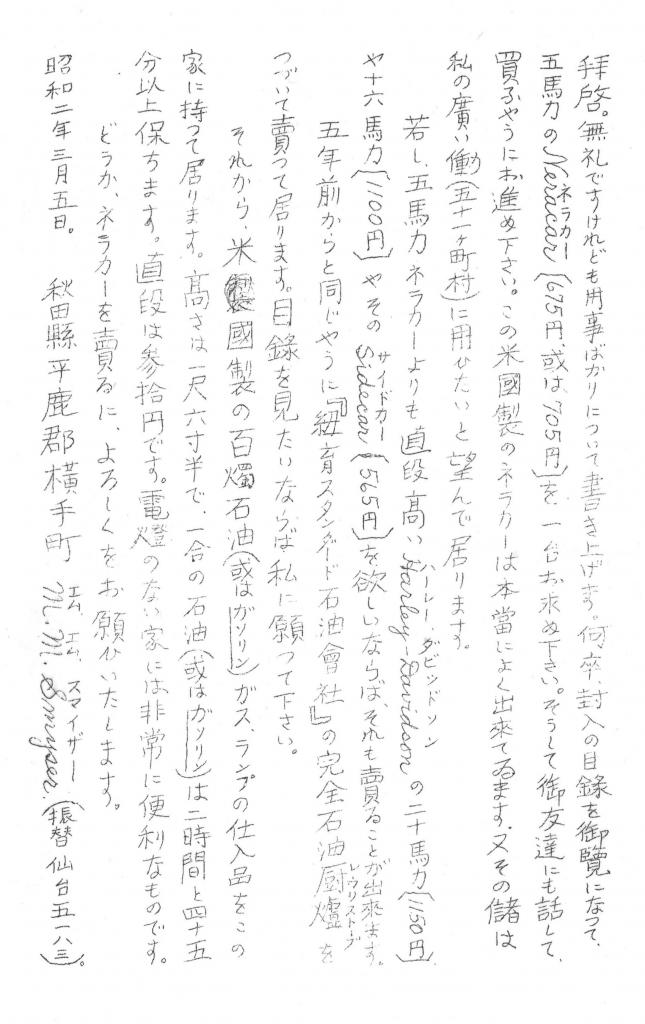 拝啓。無礼ですけれども用事ばかりについて書き上げます。何卒、封入の目錄を御覽になつて、
五馬力のNeracar(ネラカー)〔675円、或は705円〕を一台お求め下さい。そうして御友達にも話して、
買ふやうにお進め下さい。この米國製のネラカーは本當によく出來てゐます。又その儲は
私の廣い働(五十一ヶ町村)に用ひたいと望んで居ります。
若し、五馬力ネラカーよりも直段高いHarley-Davidson(ハーレー、ダビッドソン)の二十馬力〔1150円〕
や十六馬力〔1100円〕やそのSidecar(サイドカー)〔565円〕を欲しいならば、それも賣ることが出來ます。
五年前からと同じやうに『紐育スタンダード石油會社』の完全石油厨爐を
つづいて賣つて居ります。目錄を見たいならば私に願つて下さい。
それから、米國製の百燭石油(或はガソリン)ガス、ランプの仕入品をこの
家に持つて居ります。高さは一尺六寸半で、一合の石油(或はガソリン)は二時間と四十五
分以上保ちます。直段は参拾円です。電燈のない家には非常に便利なものです。
どうか、ネラカーを賣るに、よろしくをお願ひいたします。
昭和二年三月五日。 秋田縣平鹿郡横手町 M. M. Smyser.(エム エム、スマイザー)(振替仙台五一八三)。